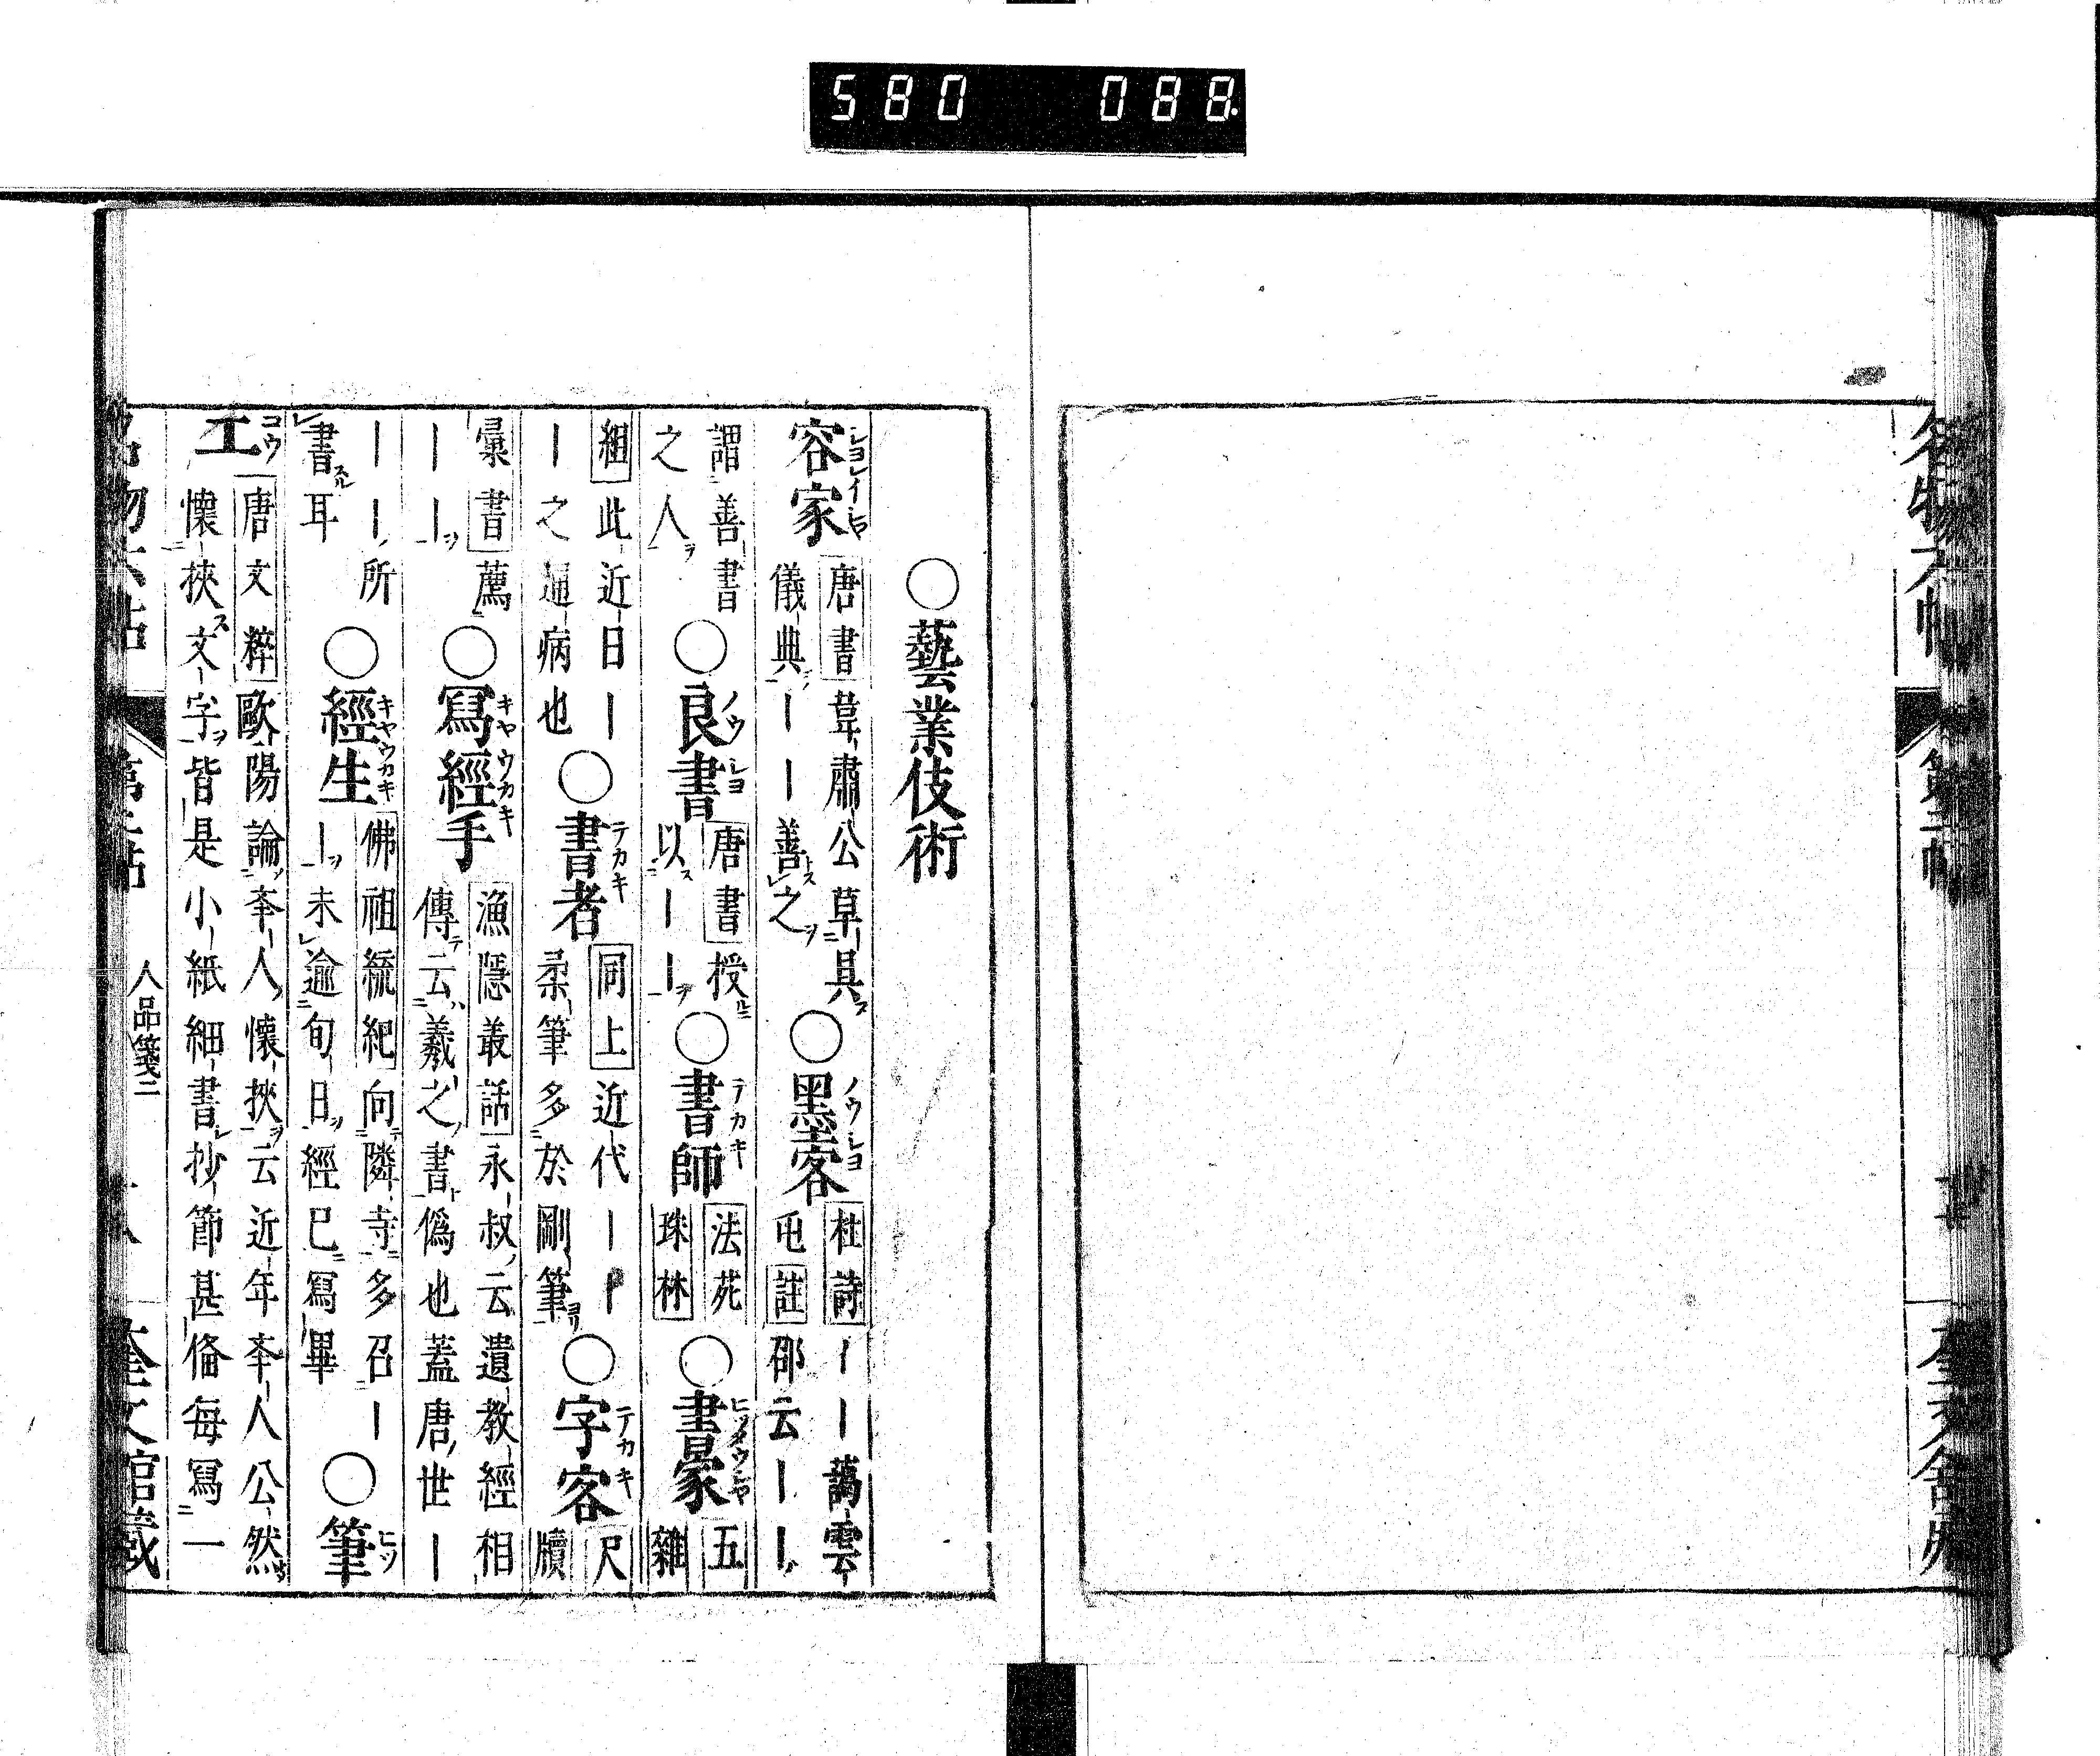 580 088
○藝業伎術
容家 唐書 韋肅公草具儀典――善之 ○墨客 杜詩 ――藹雲屯 註 邵云――
謂善書之人 ○良書 唐書 授以―― ○書師 法苑珠林 ○書彙 五雜
組 此近日――之通病也 ○書者 同上 近代――柔筆多於剛筆 ○字客 尺牘
彙書 薦―― ○寫經手 漁隱叢話 永叔云遺教經相傳云羲之書僞也蓋唐世―
――所書耳 ○經生 佛祖統紀 向隣寺多召――未逾旬日經已寫畢 ○筆
工 唐文粹 歐陽論李人懷挾云近年李人公然懷挾文字皆是小紙細書抄節甚俻每寫一
人品箋二
奎文館藏